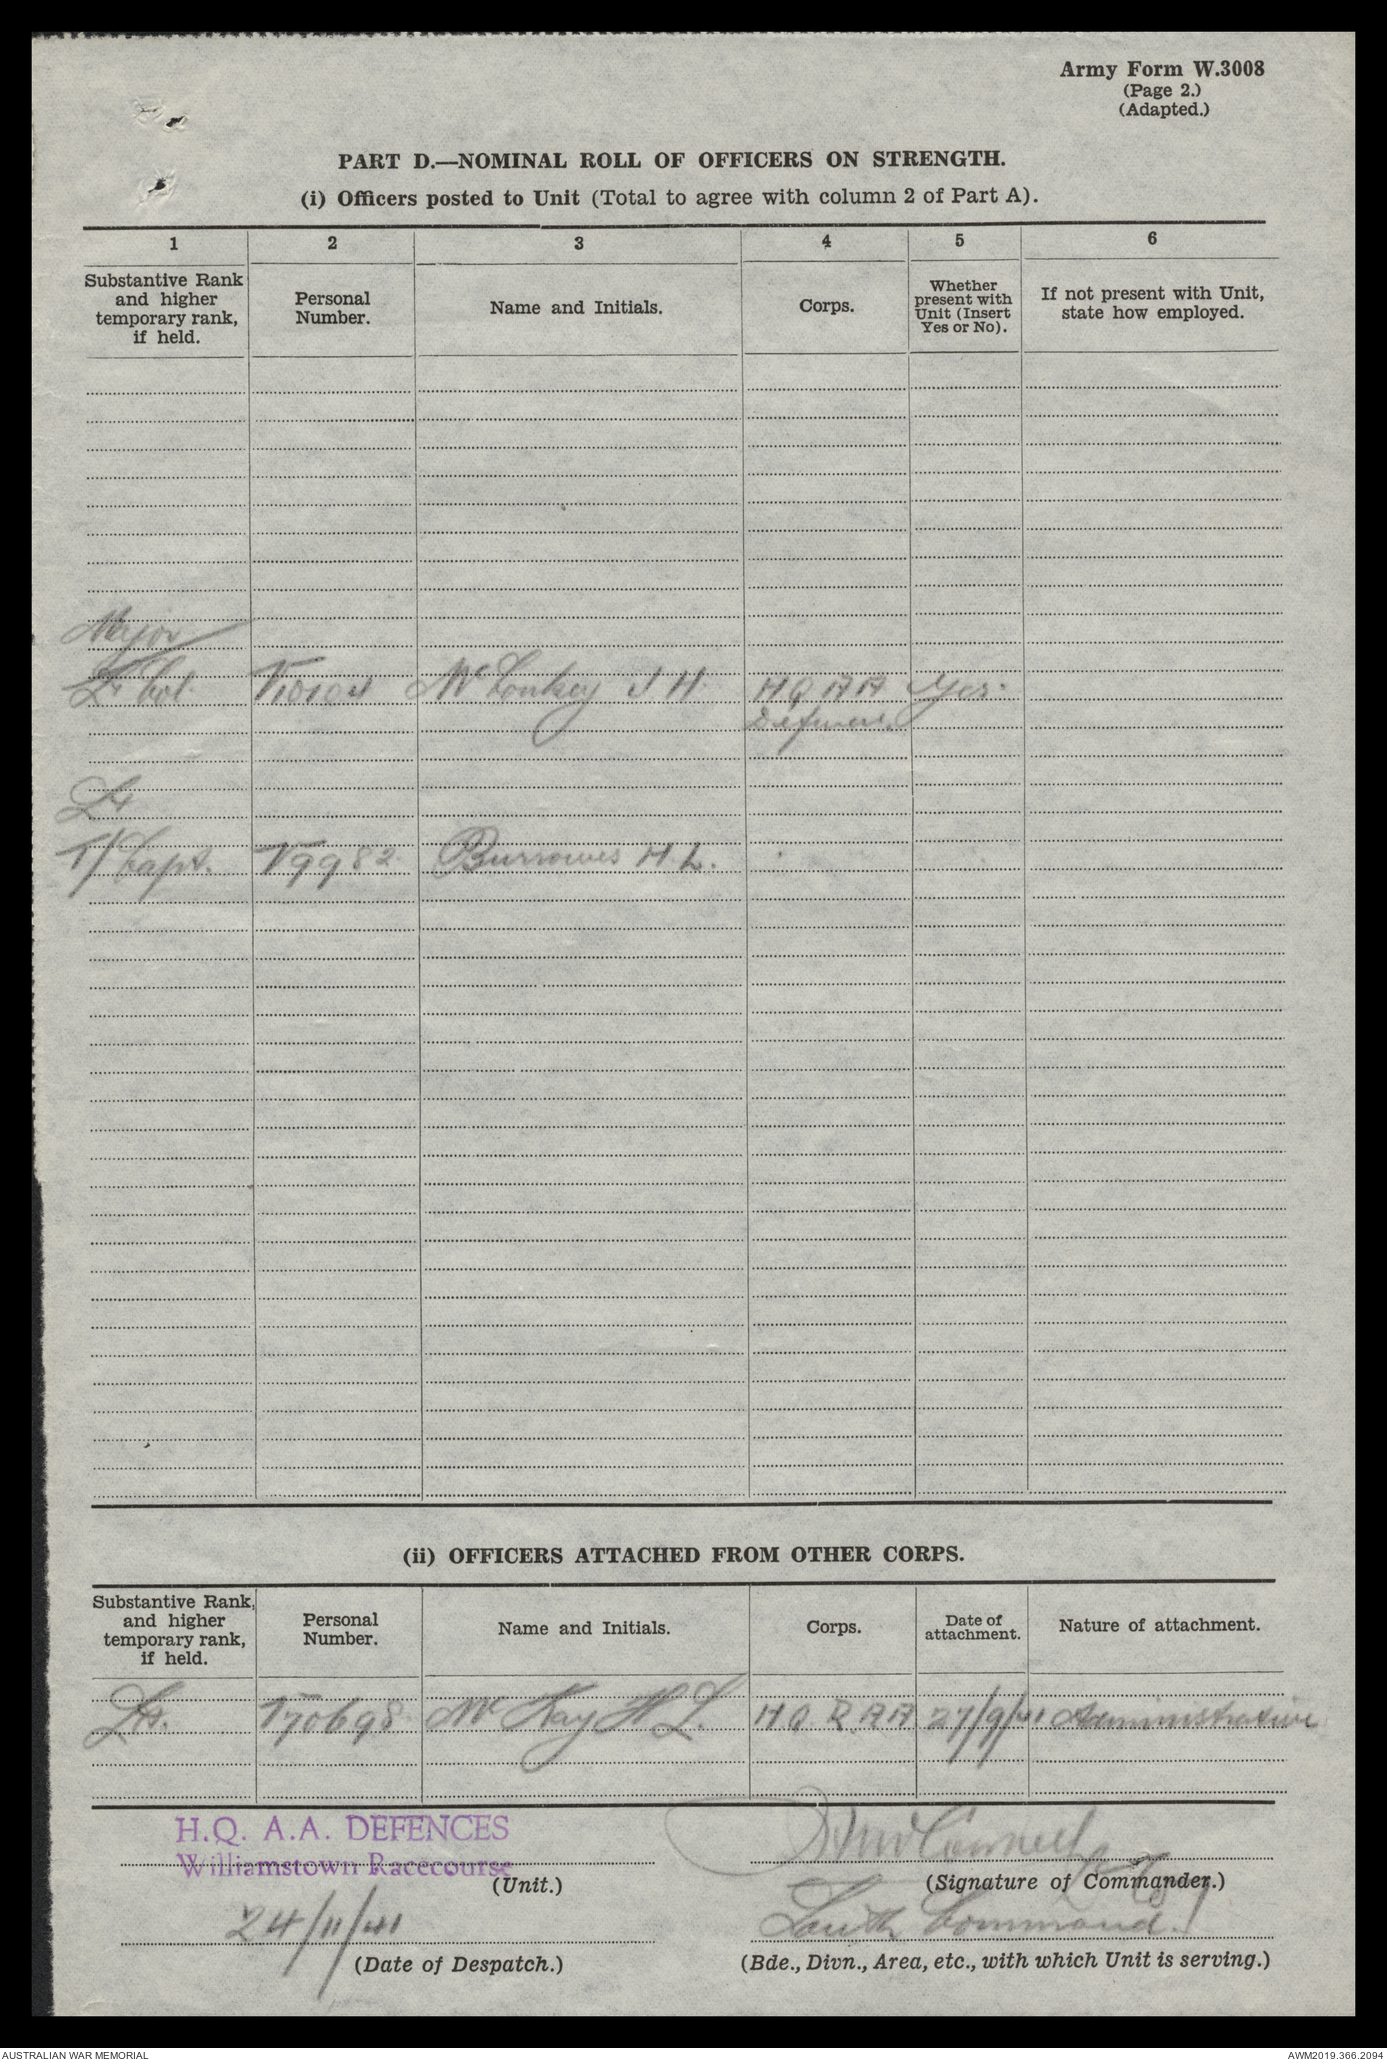 Army Form W.3008
(Page 2.)
(Adapted.)
PART D.—NOMINAL ROLL OF OFFICERS ON STRENGTH.
(i) Officers posted to Unit (Total to agree with column 2 of Part A).
1 2 3 4 5 6
Substantive Rank and higher temporary rank, if held.
Personal Number.
Name and Initials.
Corps.
Whether present with Unit (Insert Yes or No).
If not present with Unit, state how employed.
Major
Lt Col. V10104 J H. H Q A A Yes.
Defence.
Lt
T/Capt. V9982. Burrowes H. L.
(ii) OFFICERS ATTACHED FROM OTHER CORPS.
Substantive Rank, and higher temporary rank, if held.
Personal Number.
Name and Initials.
Corps.
Date of attachment.
Nature of attachment.
Lt. V70698 McKay H L. H Q R A A 27/9/41 Administrative
H.Q. A.A. DEFENCES
Williamstown Racecourse
(Unit.)
(Signature of Commander.)
24/11/41
South Command.
(Date of Despatch.)
(Bde., Divn., Area, etc., with which Unit is serving.)
AUSTRALIAN WAR MEMORIAL
AWM2019.366.2094